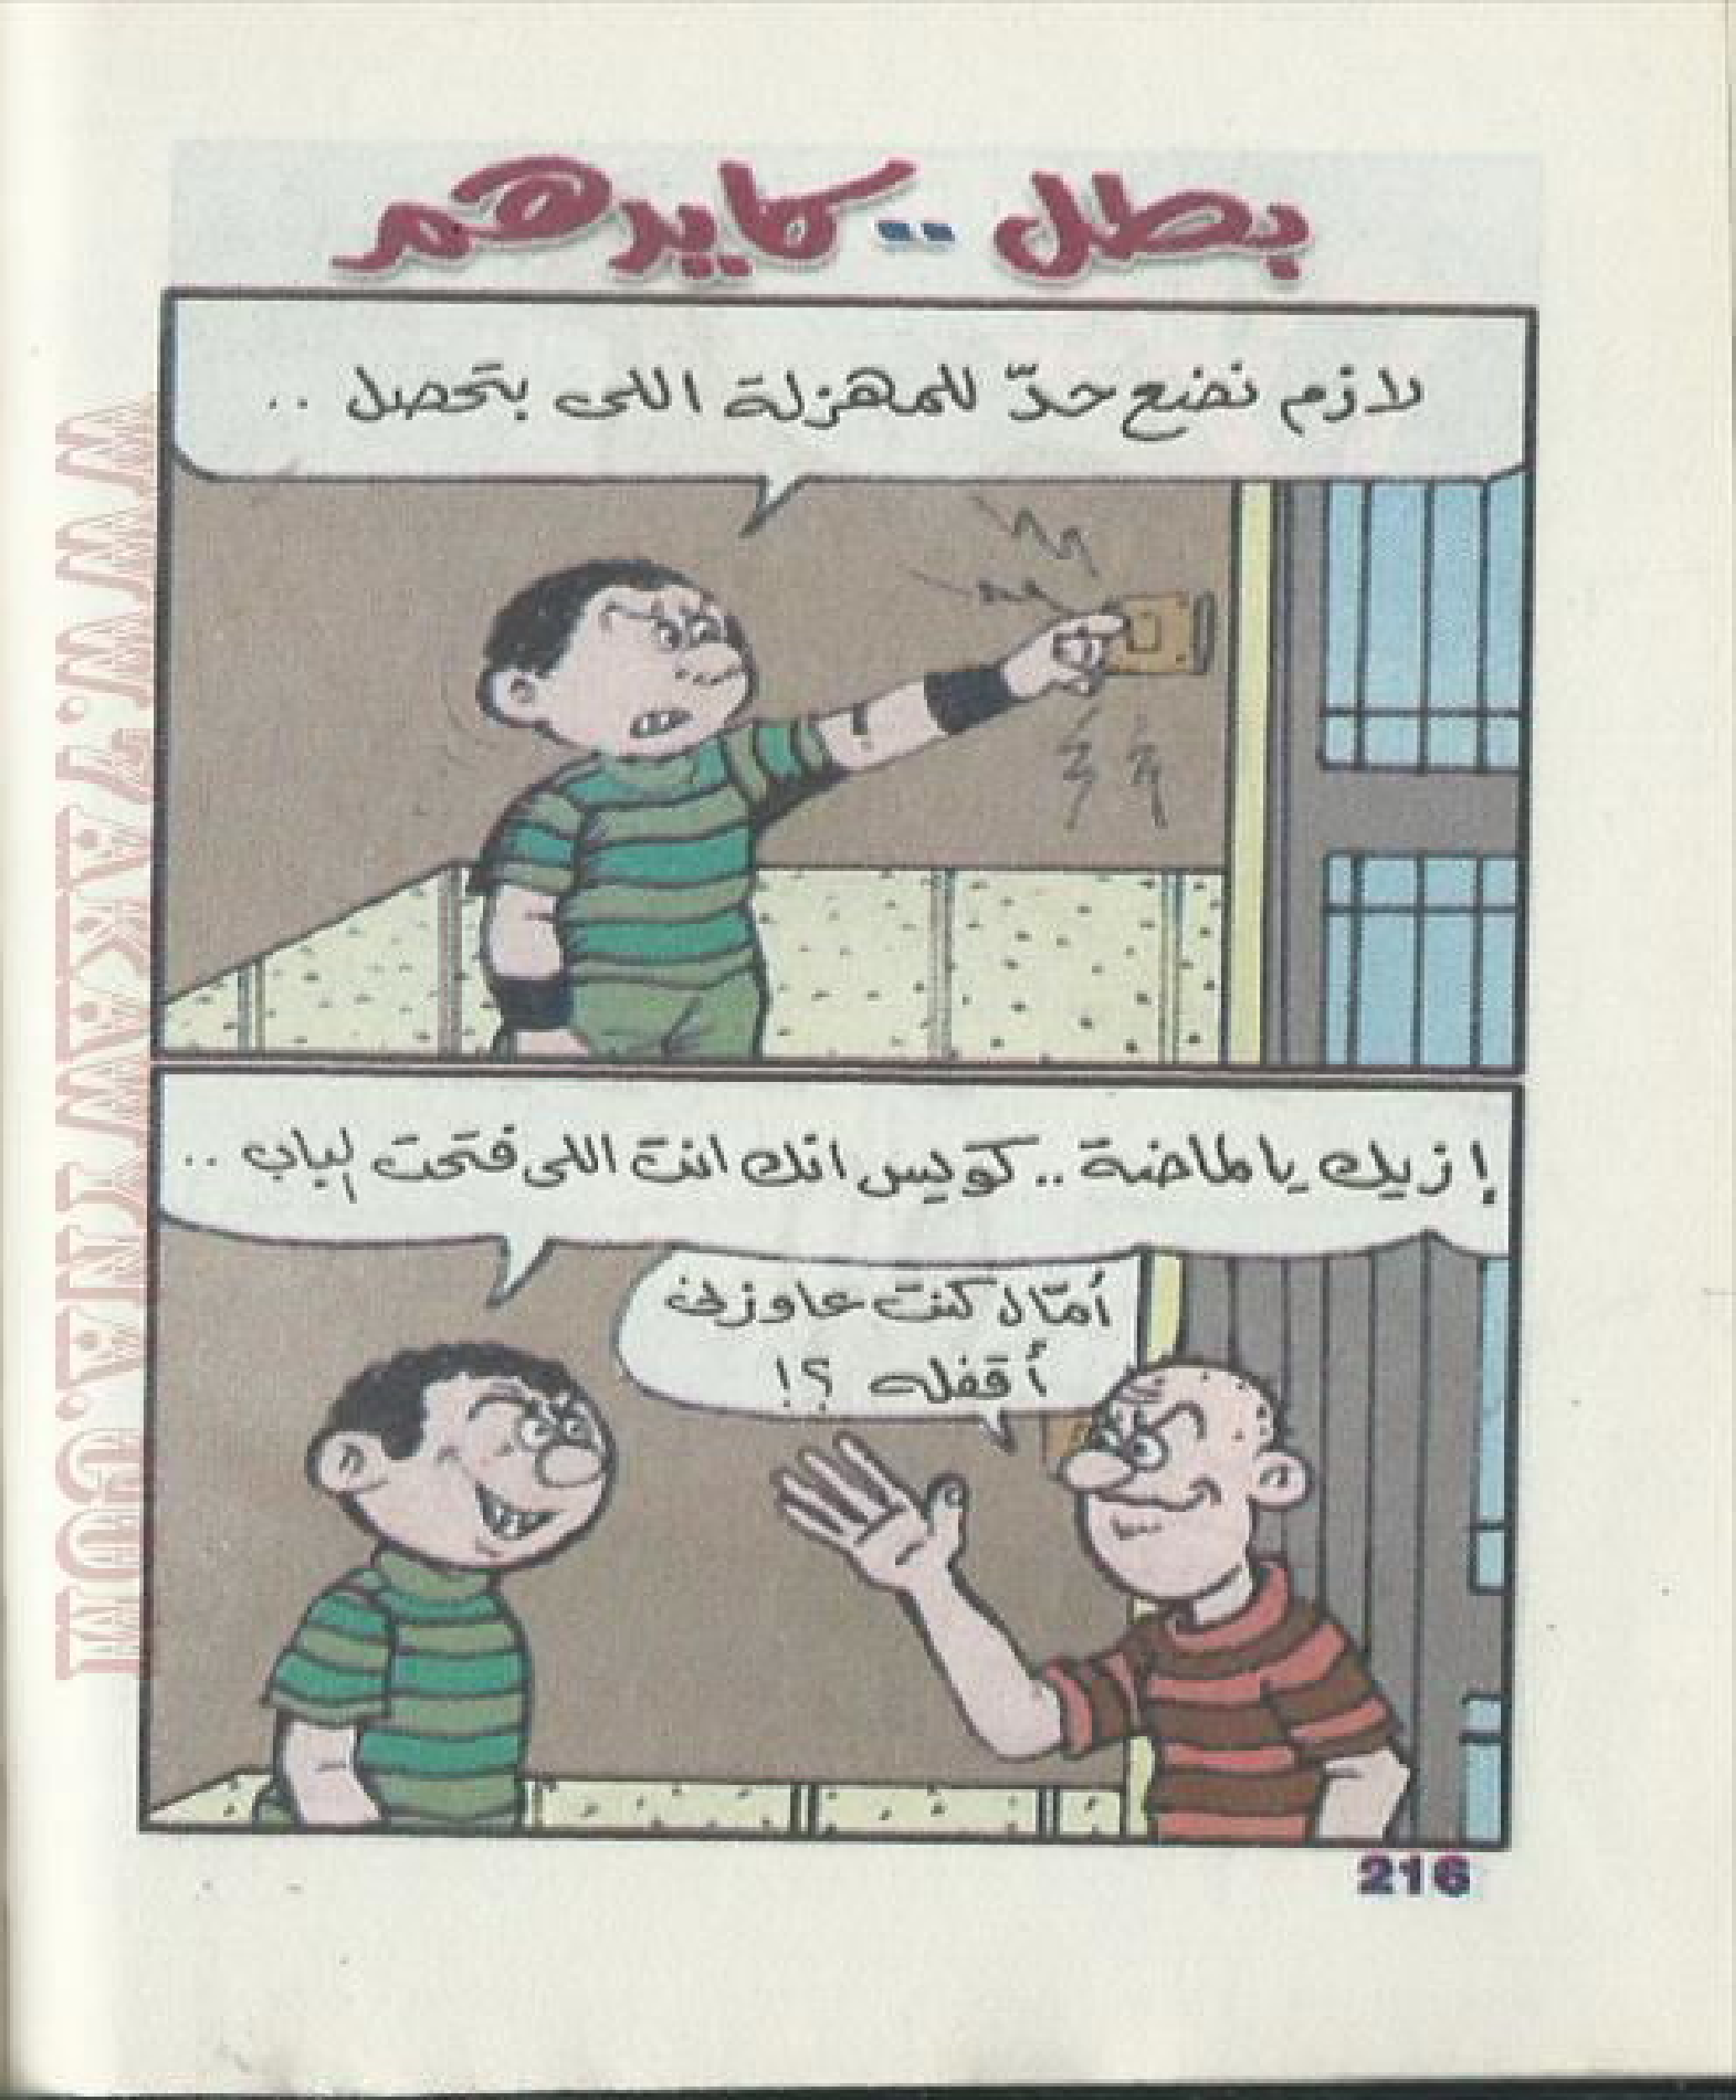 بطل .. كايدهم
لازم نضع حدّ للمهزلة اللى بتحصل ..
إزيك يا لماضة .. كويس انك انت اللى فتحت الباب ..
أمّال كنت عاوزنى
أقفله ؟!
216